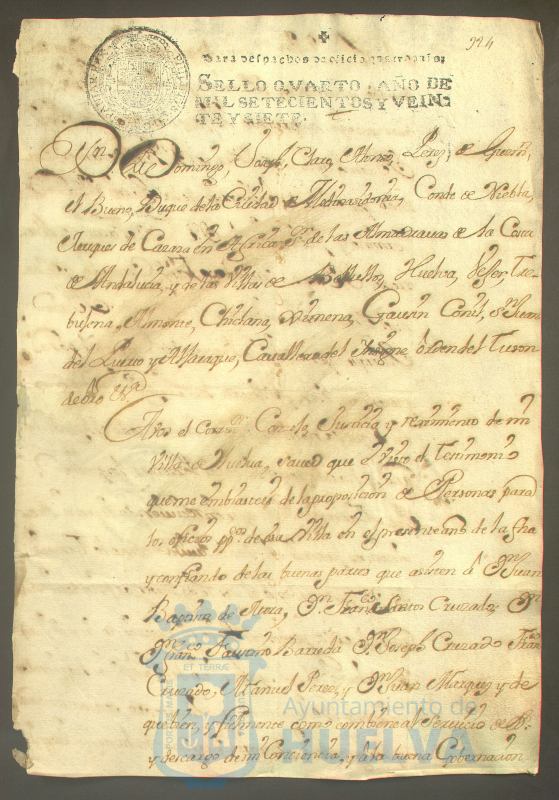 224
Para despachos de oficio quatro mrs;
SELLO QVARTO, AÑO DE
MIL SETECIENTOS Y VEIN-
TE Y SIETE.
Dn Domingo, Joseph, Claros, Alonso, Perez, de Guzman,
el Bueno, Duque de la Ciudad de Medinasidonia, Conde de Niebla,
Marques de Cazaza en Africa, Sr. de las Almadravas de la Costa
de Andalucia, y de las Villas de Huelva, Tre-
buxena, Almonte, Chiclana, Ximena, Gausin, Conil, Sn Juan
del Puerto y Aljaraque, Cavallero del Insigne orden del Tuson
de oro &a.
A vos el Consejo, Justicia y reximiento de mi
Villa de Huelva, saved que e visto el Testimonio
que me embiasteis de la proposicion de Personas para
los oficios ppcos de esa Villa en el presente año de la fha
y confiando de las buenas partes que asisten a Dn Juan
Baptta de Mora, Dn Franco Cruzado, Dn
Barreda Dn Joseph Cruzado Franco
Cruzado, Manuel Perez, y Dn Juan Marquez y de
que bien y fielmente como combiene al Servicio de Ds
y descargo de mi Conciencia, y a la buena Gobernacion
PORTUS MARIS ET TERRÆ CUSTODIA
Ayuntamiento de
HUELVA